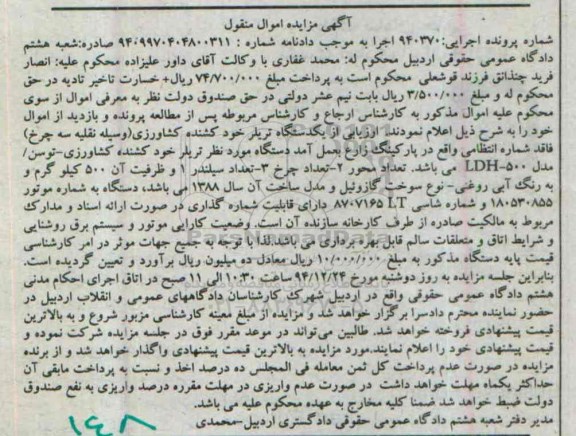 آگهی مزایده اموال منقول
شماره پرونده اجرایی:۹۴۰۳۷۰ اجرا به موجب دادنامه شماره : ۹۴۰۹۹۷۰۴۰۴۸۰۰۳۱۱ صادره:شعبه هشتم
دادگاه عمومی حقوقی اردبیل محکوم له: محمد غفاری با وکالت آقای داور علیزاده محکوم علیه: انصار
فرید چنذانق فرزند قوشعلی محکوم است به پرداخت مبلغ ۷۴/۷۰۰/۰۰۰ ریال+ خسارت تاخیر تادیه در حق
محکوم له و مبلغ ۳/۵۰۰/۰۰۰ ریال بابت نیم عشر دولتی در حق صندوق دولت نظر به معرفی اموال از سوی
محکوم علیه اموال مذکور به کارشناس ارجاع و کارشناس مربوطه پس از مطالعه پرونده و بازدید از اموال
خود را به شرح ذیل اعلام نمودند: ارزیابی از یکدستگاه تریلر خود کشنده کشاورزی(وسیله نقلیه سه چرخ)
فاقد شماره انتظامی واقع در پارکینگ زارع بعمل آمد دستگاه مورد نظر تریلر خود کشنده کشاورزی-توسن/
مدل LDH-۵۰۰ می باشد. تعداد محور ۲-تعداد چرخ ۳-تعداد سیلندر ۱ و ظرفیت آن ۵۰۰ کیلو گرم و
به رنگ آبی روغنی- نوع سوخت گازوئیل و مدل ساخت آن سال ۱۳۸۸ می باشد، دستگاه به شماره موتور
۱۸۰۵۳۰۸۵۵ و شماره شاسی LT ۸۷۰۷۱۶۵ دارای قابلیت شماره گذاری در صورت ارائه اسناد و مدارک
مربوط به مالکیت صادره از طرف کارخانه سازنده آن است. وضعیت کارایی موتور و سیستم برق روشنایی
و شرایط اتاق و متعلقات سالم قابل بهره برداری می باشد.لذا با توجه به جمیع جهات موثر در امر کارشناسی
قیمت پایه دستگاه مذکور به مبلغ ۱۰/۰۰۰/۰۰۰ ریال معادل ده میلیون ریال برآورد و تعیین گردیده است.
بنابراین جلسه مزایده به روز دوشنبه مورخ ۹۴/۱۲/۲۴ ساعت ۱۰:۳۰ الی ۱۱ صبح در اتاق اجرای احکام مدنی
هشتم دادگاه عمومی حقوقی واقع در اردبیل شهرک کارشناسان دادگاههای عمومی و انقلاب اردبیل در
حضور نماینده محترم دادسرا برگزار خواهد شد و مزایده از مبلغ معینه کارشناسی مزبور شروع و به بالاترین
قیمت پیشنهادی فروخته خواهد شد. طالبین می‌تواند در موعد مقرر فوق در جلسه مزایده شرکت نموده و
قیمت پیشنهادی خود را اعلام نمایند.مورد مزایده به بالاترین قیمت پیشنهادی واگذار خواهد شد و از برنده
مزایده در صورت عدم پرداخت کل ثمن معامله فی المجلس ده درصد اخذ و نسبت به پرداخت مابقی آن
حداکثر یکماه مهلت خواهد داشت در صورت عدم واریزی در مهلت مقرره درصد واریزی به نفع صندوق
دولت ضبط خواهد شد ضمنا کلیه مخارج به عهده محکوم علیه می باشد.
مدیر دفتر شعبه هشتم دادگاه عمومی حقوقی دادگستری اردبیل-محمدی
۱۴۸